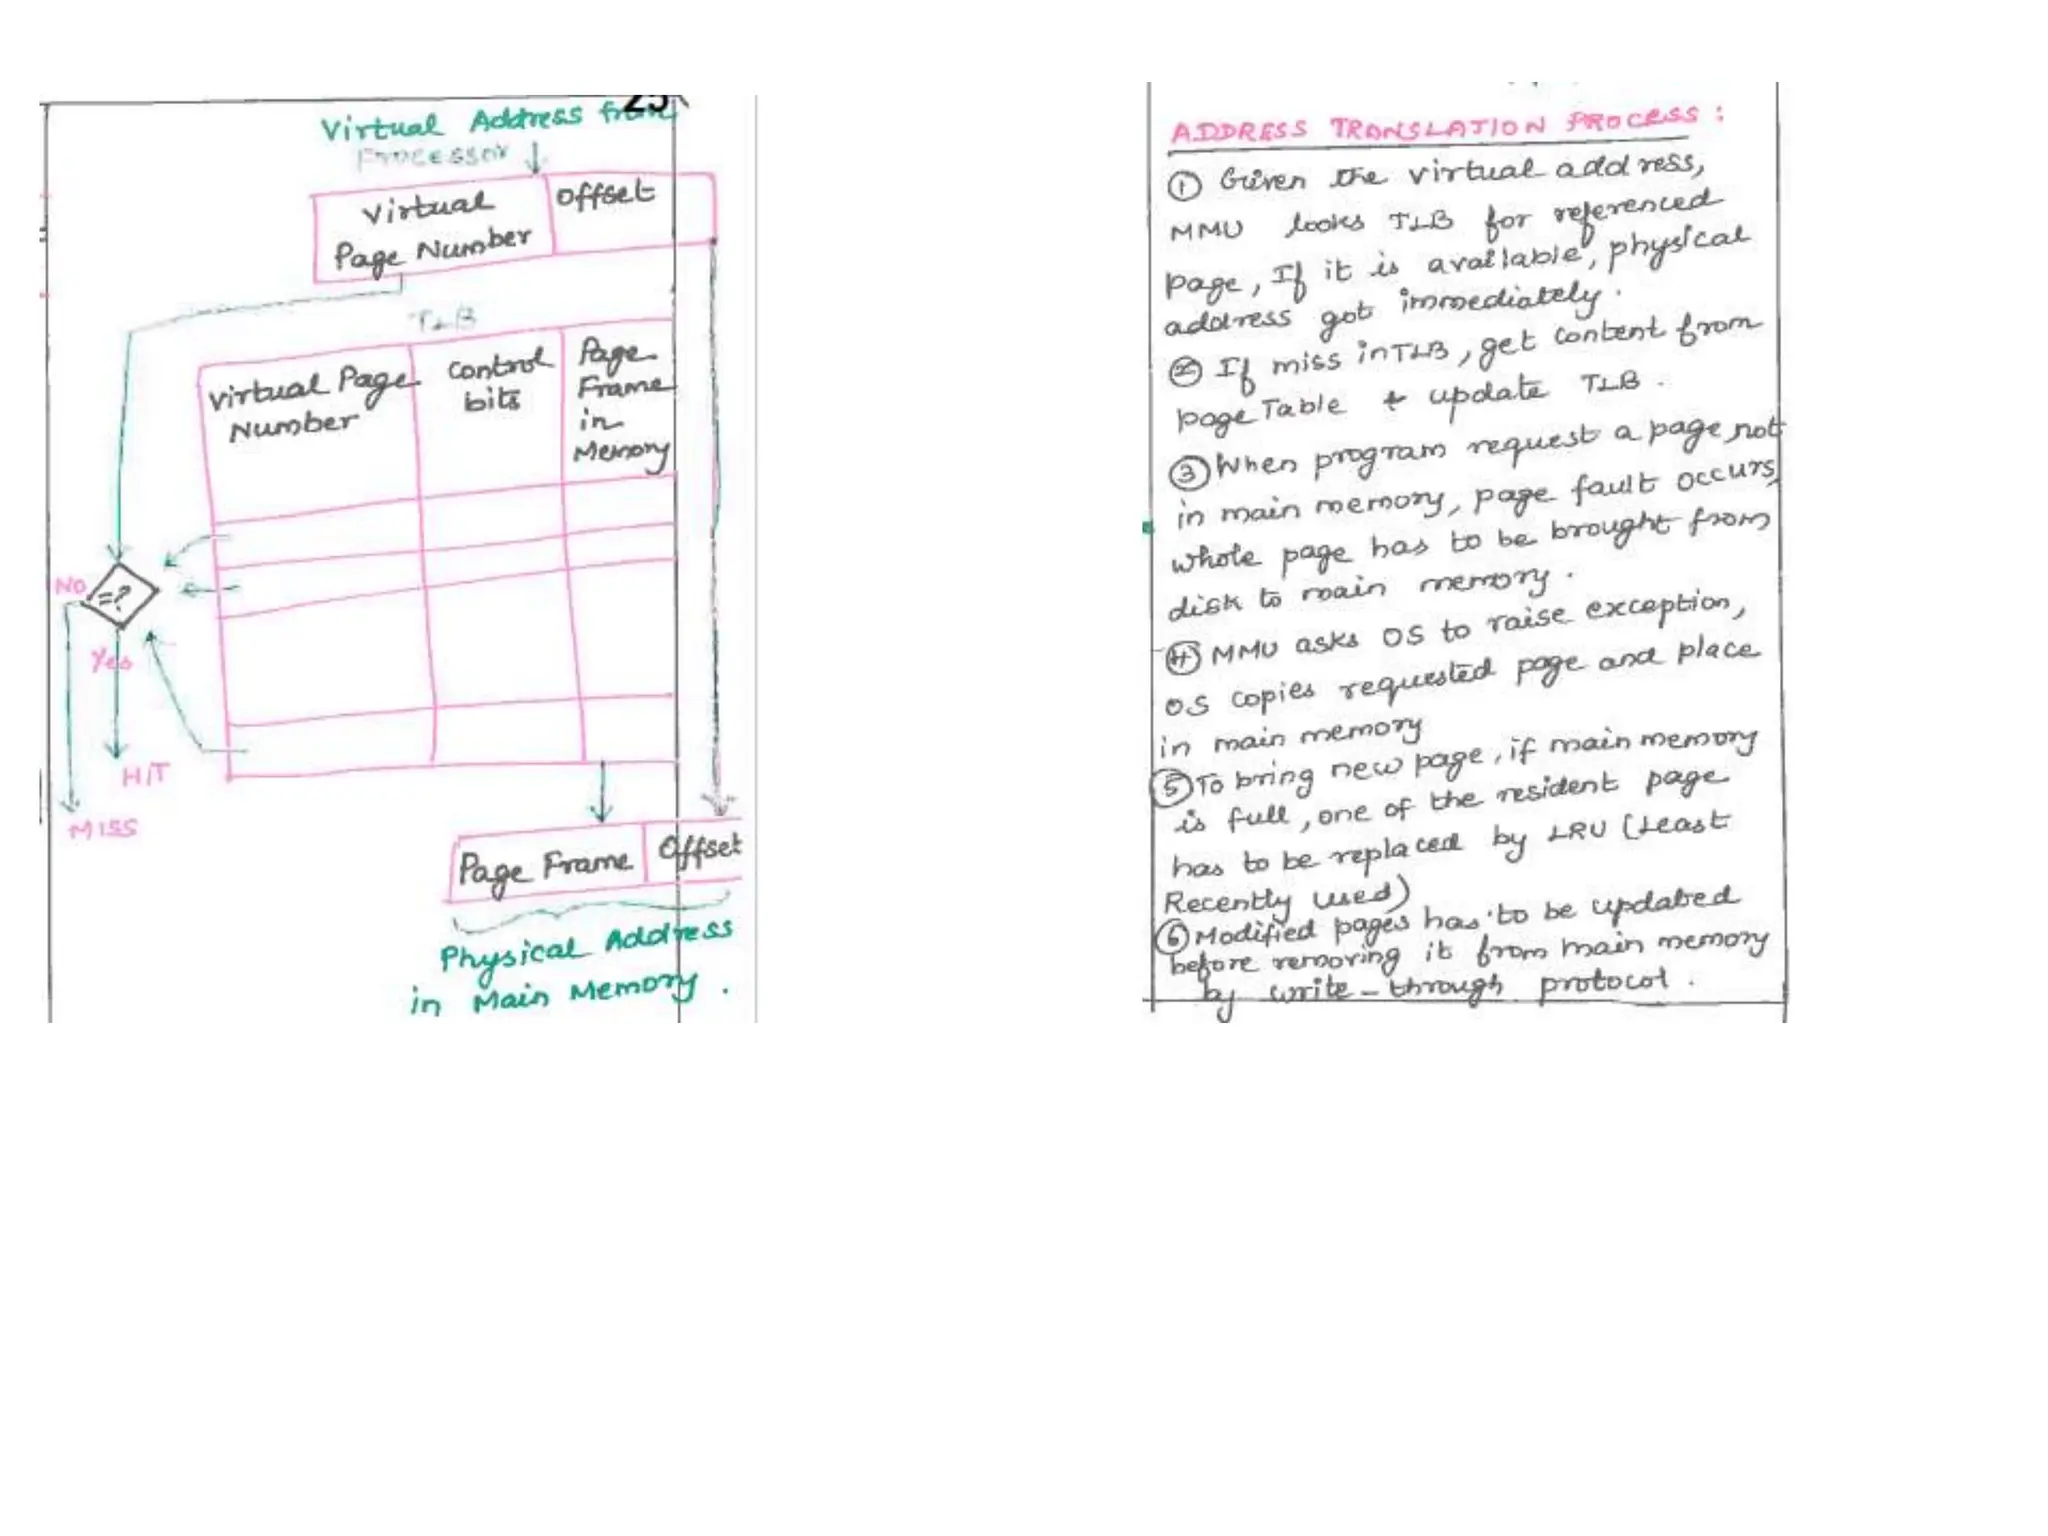 25
Virtual Address from
Processor
Virtual
Page Number
Offset
TLB
Virtual Page
Number
Control
bits
Page
Frame
in
Memory
NO
=?
Yes
HIT
MISS
Page Frame
Offset
Physical Address
in Main Memory.
ADDRESS TRANSLATION PROCESS:
① Given the virtual address,
MMU looks TLB for referenced
page, If it is available, physical
address got immediately.
② If miss in TLB, get content from
page Table + update TLB.
③ When program request a page not
in main memory, page fault occurs,
whole page has to be brought from
disk to main memory.
④ MMU asks OS to raise exception,
OS copies requested page and place
in main memory
⑤ To bring new page, if main memory
is full, one of the resident page
has to be replaced by LRU (Least
Recently used)
⑥ Modified pages has to be updated
before removing it from main memory
by write-through protocol.